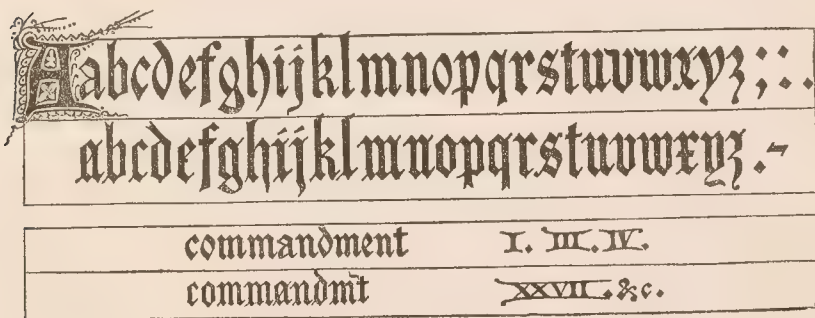 Aabcdefghijklmnopqrstuvwxyz;:.
abcdefghijklmnopqrstuvwxyz.-
commandment I. III. IV.
commandm̄t XXVII. &c.